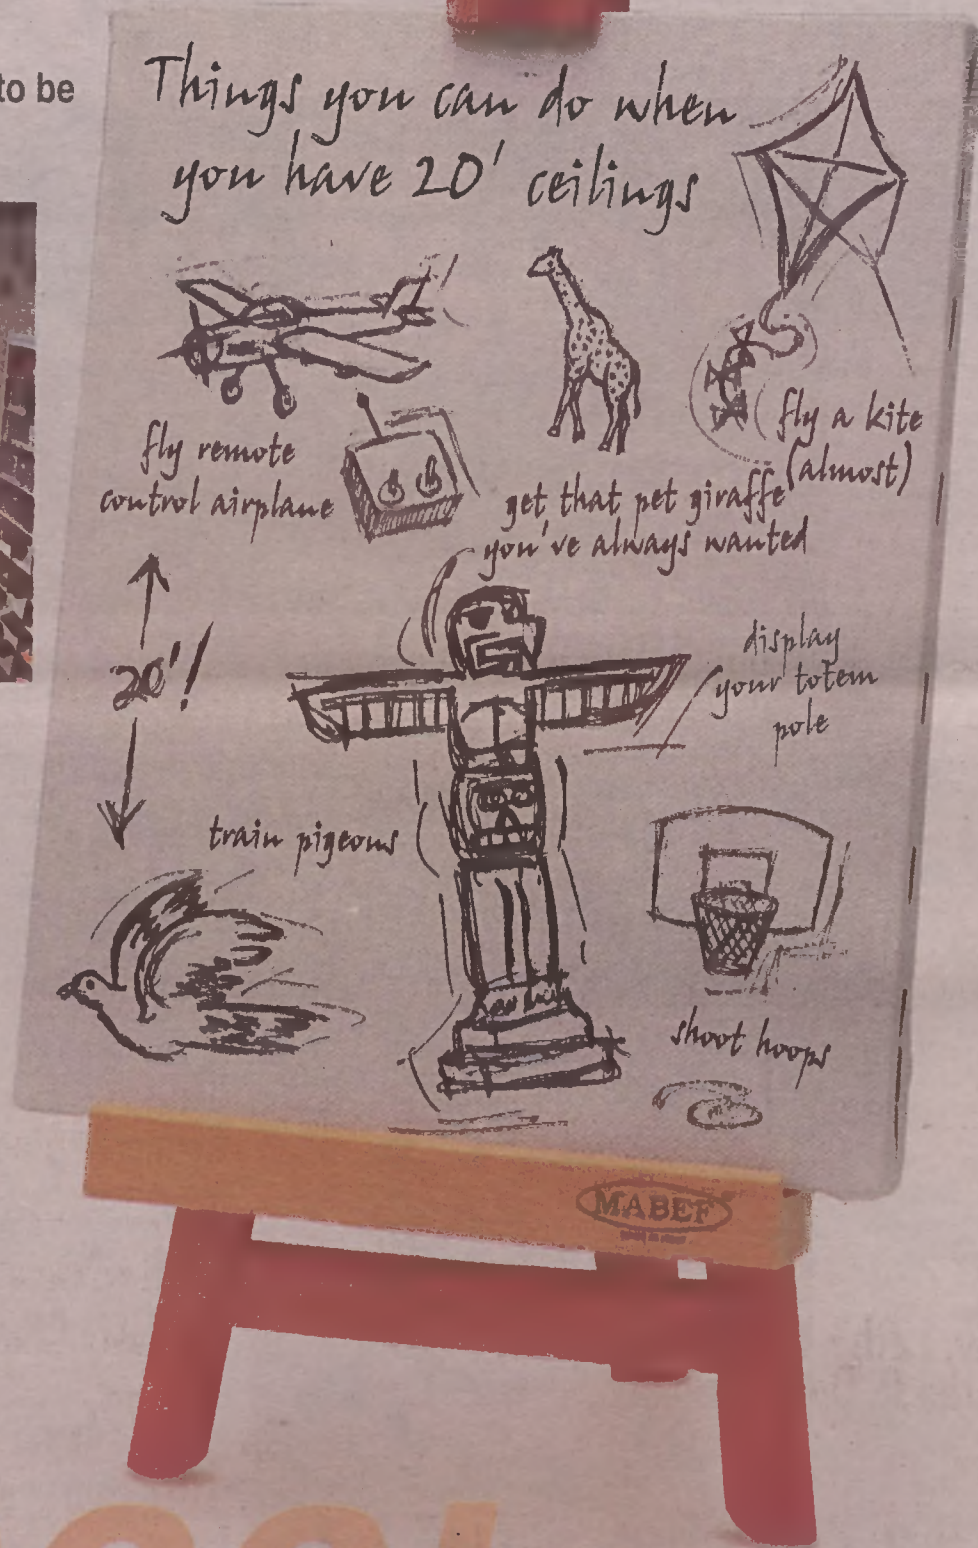 to be
Things you can do when
you have 20' ceilings
fly remote
control airplane
get that pet giraffe
you've always wanted
fly a kite
(almost)
20'!
display
your totem
pole
train pigeons
shoot hoops
MABEF